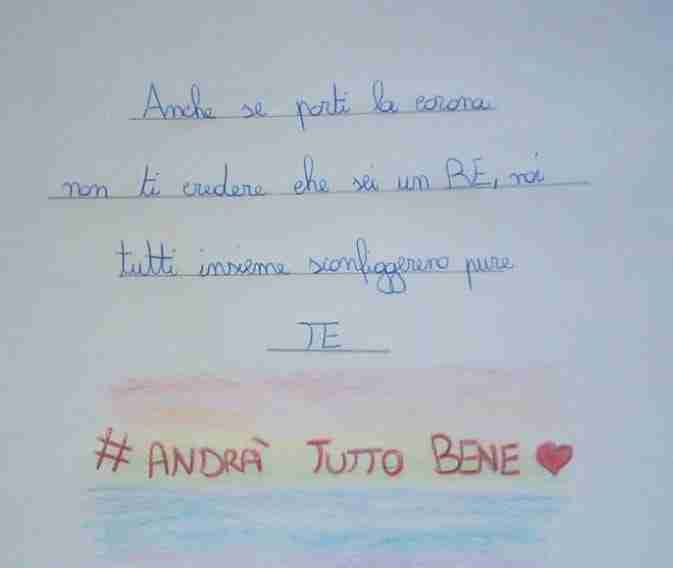 Anche se porti la corona
non ti credere che sei un RE, noi
tutti insieme sconfiggeremo pure
TE
# ANDRÀ TUTTO BENE